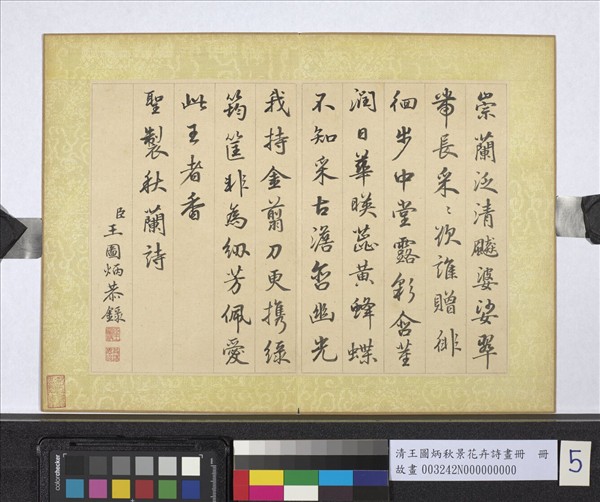 崇蘭泛清飈婆娑翠
帶長采〻欲誰贈徘
徊步中堂露彩含莖
潤日華暎蕊黃蜂蝶
不知采古澹含幽光
我持金剪刀更攜綠
筠筐非為紉芳佩愛
此王者香
聖製秋蘭詩
臣王圖炳恭錄
colorchecker
x-rite
清王圖炳秋景花卉詩畫冊 冊
故畫 003242N000000000
5